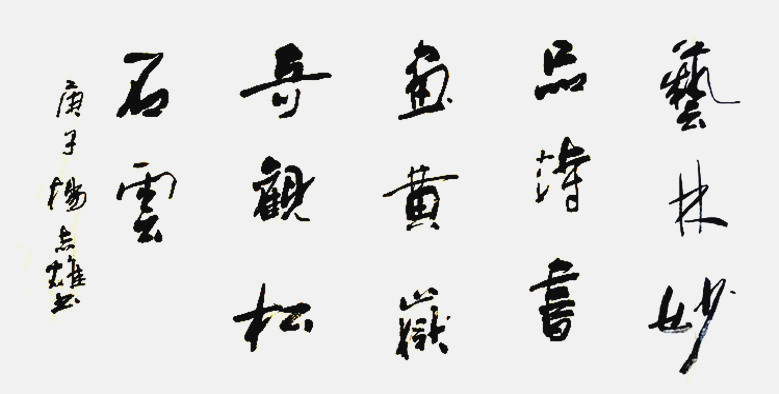 藝林妙
品詩書
畫黃嶽
奇觀松
石雲
庚子楊志雄书